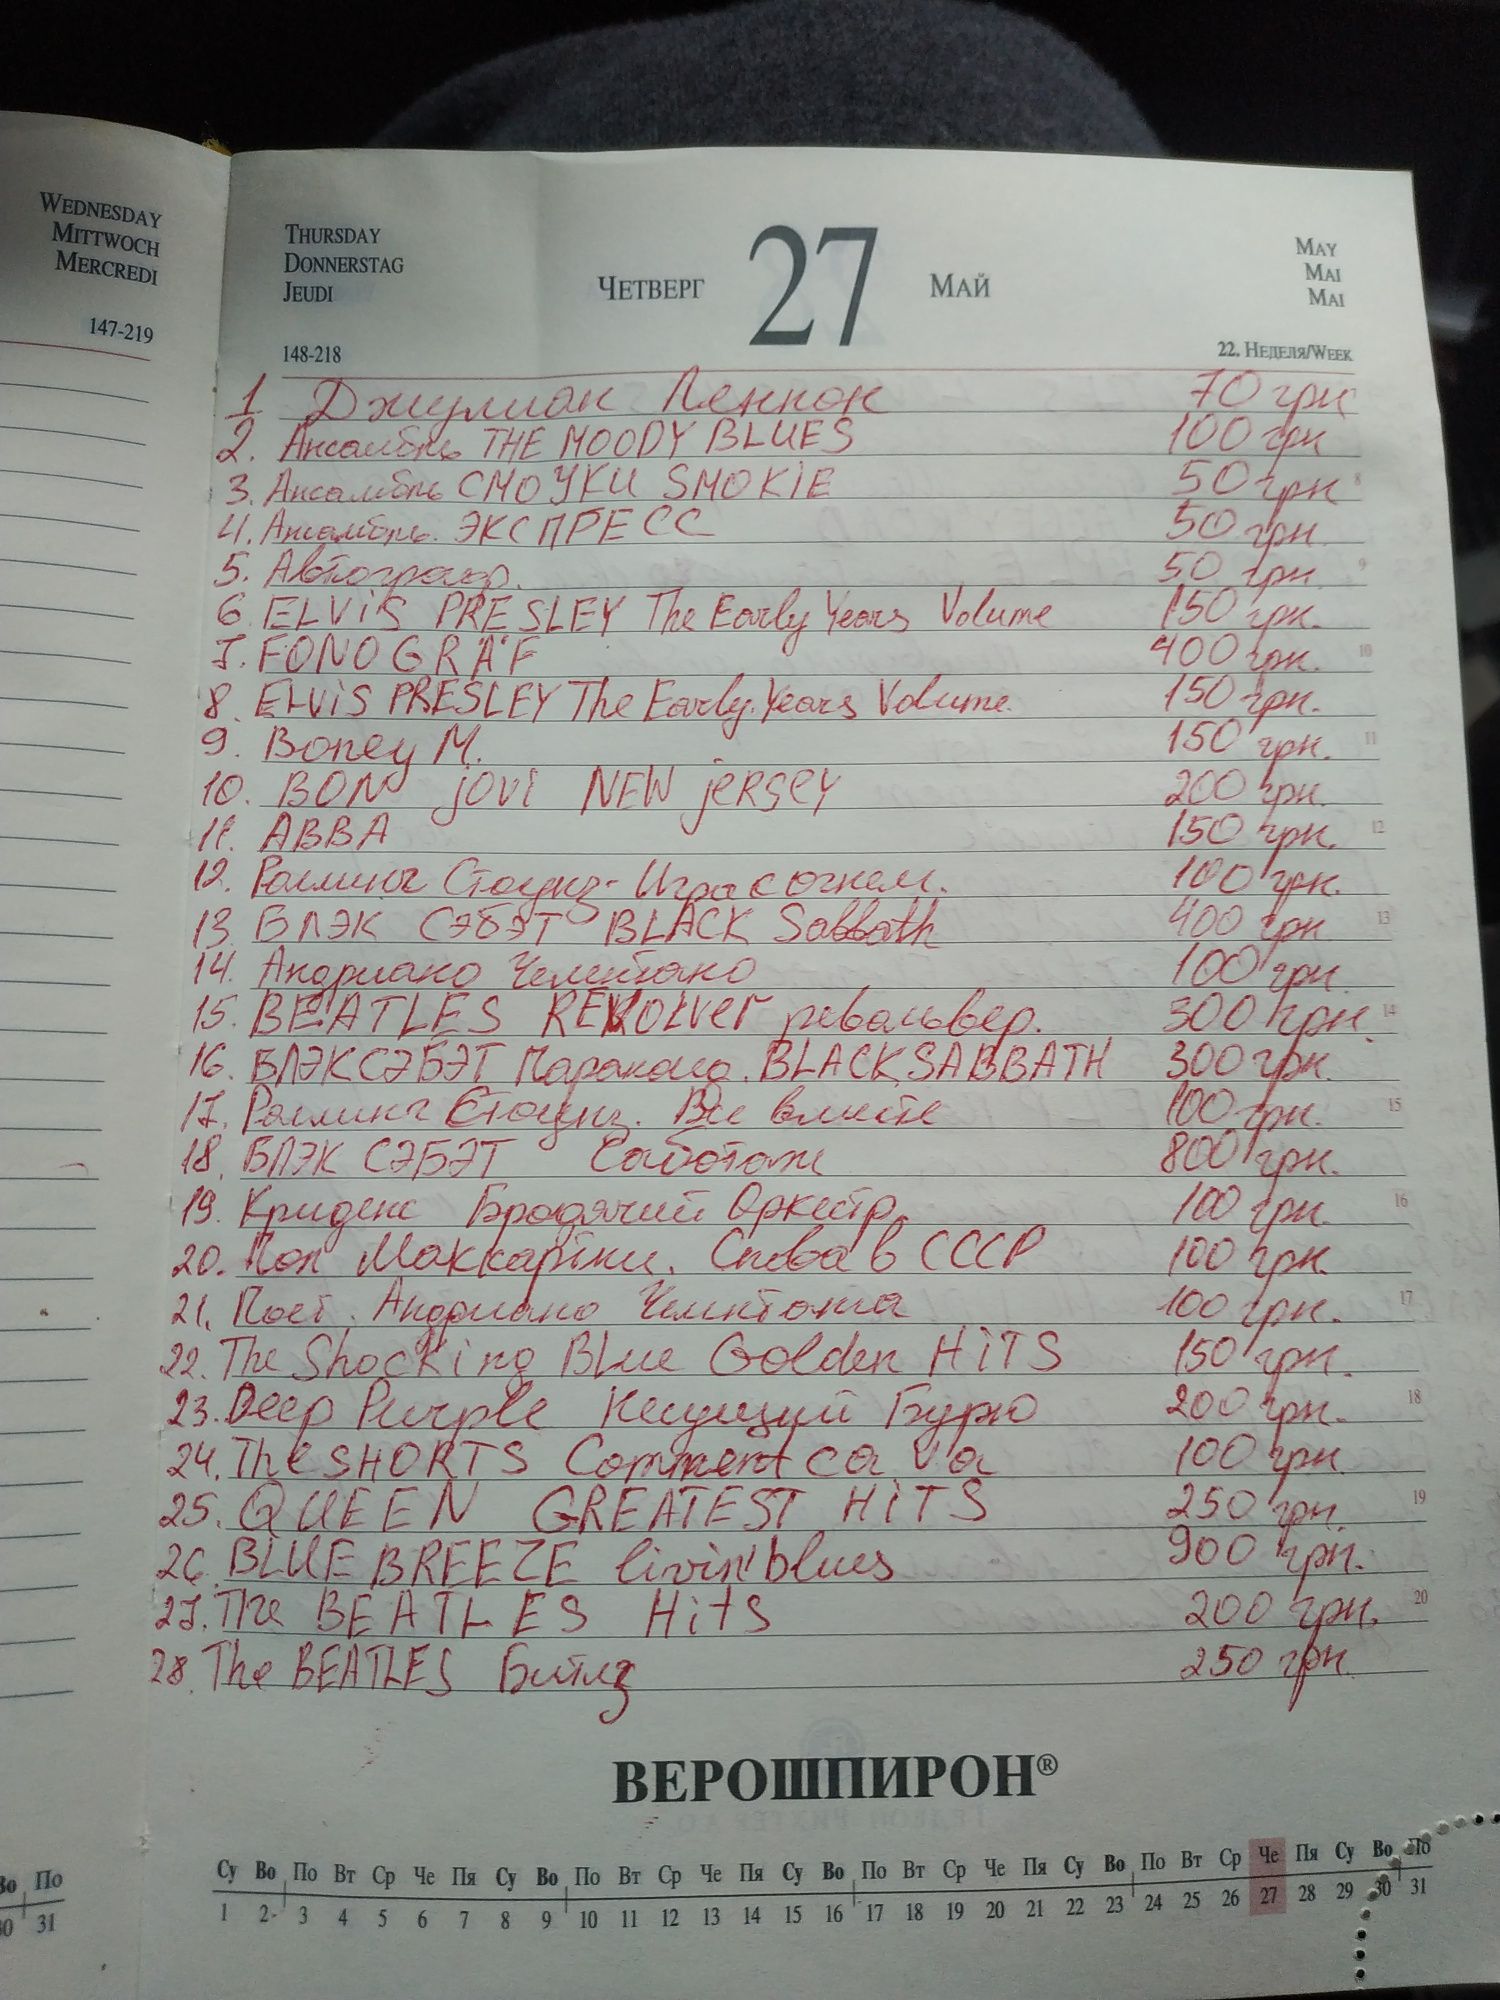 WEDNESDAY
MITTWOCH
MERCREDI
147-219
THURSDAY
DONNERSTAG
JEUDI
148-218
ЧЕТВЕРГ 27 МАЙ
MAY
MAI
MAI
22. НЕДЕЛЯ/WEEK
1 Джулиан Леннон 70 грн
2. Ансамбль THE MOODY BLUES 100 грн
3. Ансамбль СМОУКИ SMOKiE 50 грн 8
4. Ансамбль. ЭКСПРЕСС 50 грн.
5. Автограф. 50 грн. 9
6 ELViS PRESLEY The Early Years Volume 150 грн.
7. FONOGRAF 400 грн. 10
8. ELViS PRESLEY The Early. Years Volume. 150 грн.
9. Boney M. 150 грн. 11
10. BON jOVi NEW jeRSeY 200 грн.
11. ABBA 150 грн. 12
12. Роллинг Стоунз - Игра с огнем. 100 грн.
13. БЛЭК СЭБЭТ BLACK Sabbath 400 грн 13
14. Андриано Челинтано 100 грн.
15. BEATLES REVOLVer револьвер. 300 грн. 14
16. БЛЭК СЭБЭТ Параноид. BLACK SABBATH 300 грн.
17. Роллинг Стоунз. Все вместе 100 грн. 15
18. БЛЭК СЭБЭТ Саботаж 800 грн.
19. Криденс Бродячий Оркестр. 100 грн. 16
20. Пол Маккартни. Снова в СССР 100 грн.
21. Поет. Андриано Челинтана 100 грн. 17
22. The ShocKing BLue Golden HiTS 150 грн.
23. Deep Purple Несущий Бурю 200 грн. 18
24. The SHORTS Comment ca va 100 грн.
25. QUEEN GREATEST HiTS 250 грн. 19
26. BLUE BREEZE livin' blues 900 грн.
27. The BEATLES HitS 200 грн. 20
28. The BEATLES Битлз 250 грн
ВЕРОШПИРОН®
Су Во По Вт Ср Че Пя Су Во По Вт Ср Че Пя Су Во По Вт Ср Че Пя Су Во По Вт Ср Че Пя Су Во По
1 2 3 4 5 6 7 8 9 10 11 12 13 14 15 16 17 18 19 20 21 22 23 24 25 26 27 28 29 30 31
Во По
30 31